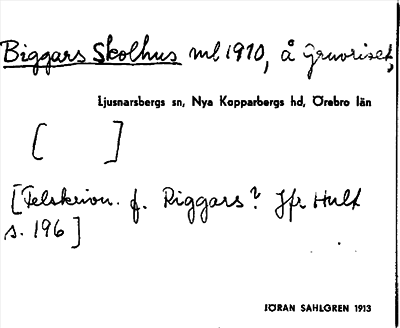 Biggars Skolhus ml 1910, å Gruvriset,
Ljusnarsbergs sn, Nya Kopparbergs hd, Örebro län
[ ]
[Felskrivn. f. Riggars? Jfr Hult
s. 196]
JÖRAN SAHLGREN 1913